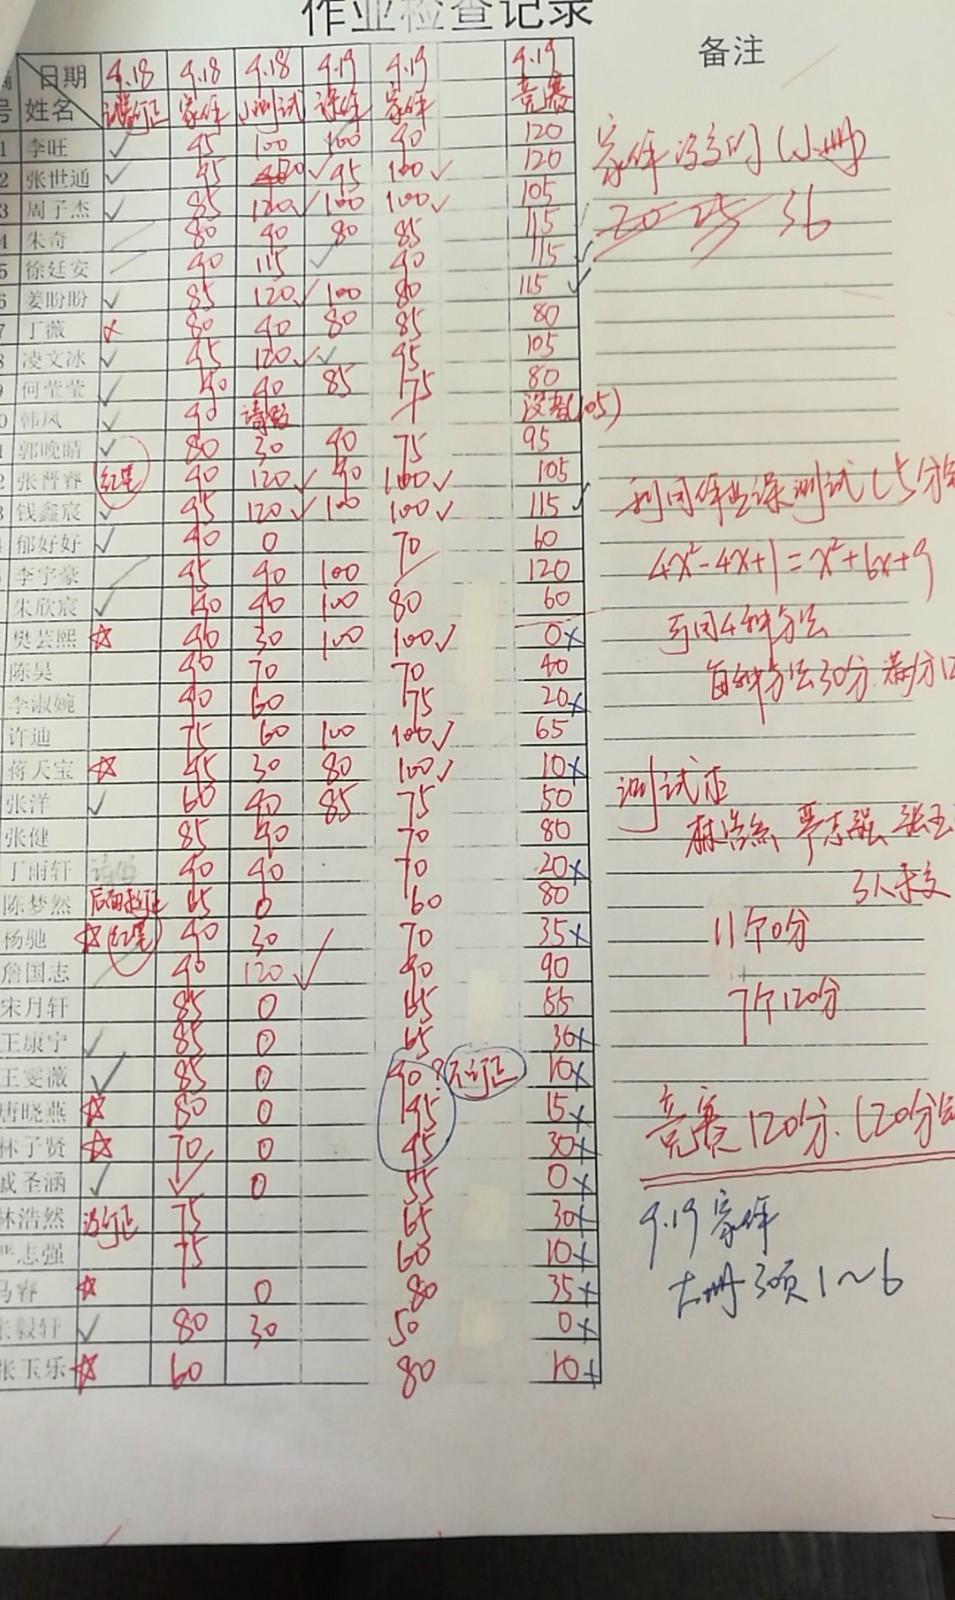 作业检查记录
备注
日期 9.18 9.18 9.18 9.19 9.19 9.19
号 姓名 订正 家作 小测试 课作 家作 竞赛
1 李旺 ✓ 95 100 100 90 120
2 张世通 ✓ 95 120 ✓ 95 100 ✓ 120
3 周子杰 ✓ 85 120 ✓ 100 100 ✓ 105
4 朱奇 80 90 80 85 115
5 徐廷安 90 115 ✓ 90 115 ✓
6 姜盼盼 ✓ 85 120 ✓ 100 80 115 ✓
7 丁薇 × 80 90 80 85 80
8 凌文冰 ✓ 95 120 ✓ ✓ 95 105
9 何莹莹 ✓ 90 90 85 75 80
0 韩风 ✓ 90 请假 没考(105)
1 郭晚晴 ✓ 80 30 90 75 95
2 张晋睿 红笔 90 120 ✓ 90 100 ✓ 105
3 钱鑫宸 ✓ 95 120 ✓ 100 100 ✓ 115 ✓
郁好好 ✓ 90 0 70 60
李宇豪 95 90 100 120
朱欣宸 ✓ 90 90 100 80 60
樊芸熙 ☆ 90 30 100 100 ✓ 0×
陈昊 90 70 70 40
李淑婉 90 60 75 20×
许迪 75 60 100 100 ✓ 65
蒋天宝 ☆ 95 30 80 100 ✓ 10×
张洋 ✓ 60 90 85 75 50
张健 85 90 70 80
丁雨轩 90 90 70 20×
陈梦然 0 60 80
杨驰 ☆ 红笔 90 30 70 35×
詹国志 90 120 ✓ 90 90
宋月轩 85 0 65
王康宁 ✓ 85 0 65 30×
王雯薇 ✓ 85 0 90 ? 不订正 10×
唐晓燕 ☆ 80 0 95 15×
林子贤 ☆ 70 0 30×
戚圣涵 ✓ 0 55 0×
林浩然 没订正 75 65 30×
严志强 75 60 10×
马睿 ☆ 0 80 35×
张毅轩 ✓ 80 30 50 0×
张玉乐 ☆ 60 80 10×
家作 没交的 (小册)
36
利用作业课测试 15分钟
4x²-4x+1=x²+6x+9
可用4种方法
每种方法30分.满分12
测试本
林浩然 严志强 张玉
3人未交
11个0分
7个120分
竞赛120分.(20分钟
9.19 家作
大册3页1~6